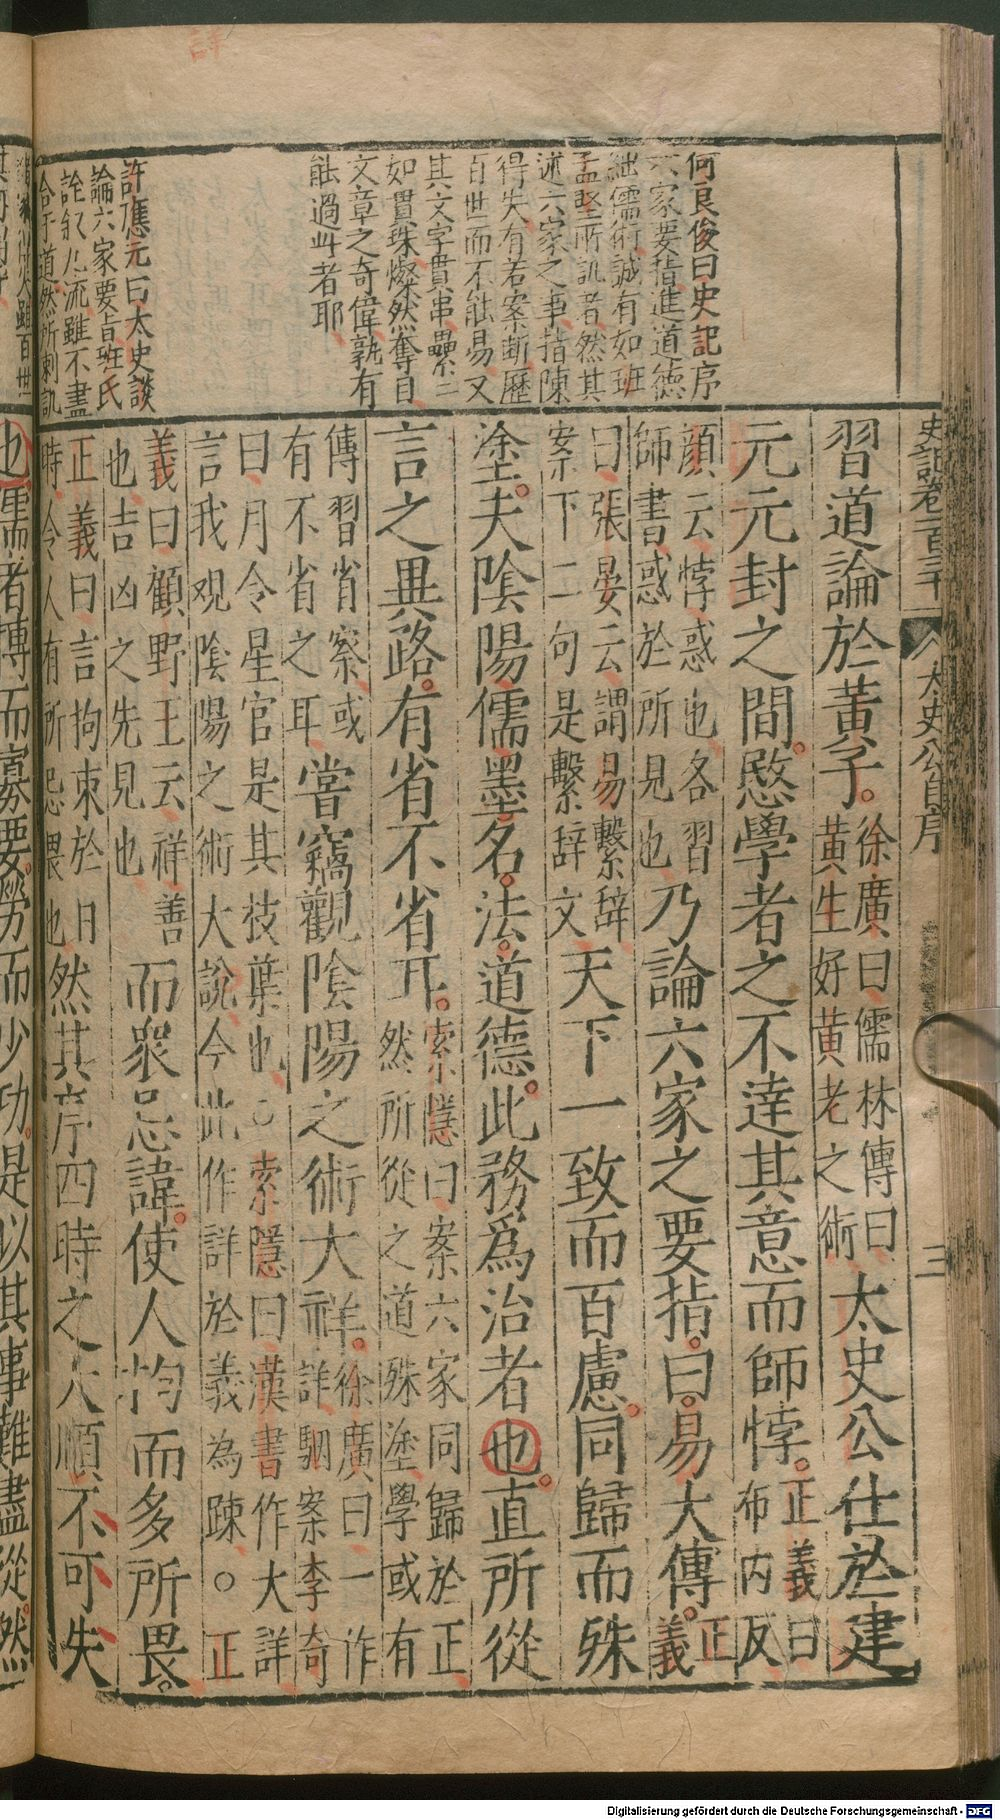 史記卷一百三十
太史公自序
三
何良俊曰史記序
六家要指進道德
絀儒術誠有如班
孟堅所訊者然其
述六家之事指陳
得失有若案斷歷
百世而不能易又
其文字貫串纍纍
如貫珠燦然奪目
文章之奇偉孰有
能過此者耶
許應元曰太史談
論六家要旨班氏
習道論於黃子
徐廣曰儒林傳曰
黃生好黃老之術
太史公仕於建
元元封之間愍學者之不達其意而師悖
正義曰
布內反
顏云悖惑也各習
師書惑於所見也
乃論六家之要指曰易大傳
正
義
曰張晏云謂易繫辭
案下二句是繫辭文
天下一致而百慮同歸而殊
塗夫陰陽儒墨名法道德此務爲治者也直所從
言之異路有省不省耳
索隱曰案六家同歸於正
然所從之道殊塗學或有
傳習省察或
有不省之耳
嘗竊觀陰陽之術大祥
徐廣曰一作
詳駰案李奇
曰月令星官是其枝葉也○索隱曰漢書作大詳
言我观陰陽之術大說今此作詳於義為疎○正
義曰顧野王云祥善
也吉凶之先見也
而衆忌諱使人拘而多所畏
正義曰言拘束於日
時令人有所忌畏也
然其序四時之大順不可失
也儒者博而寡要勞而少功是以其事難盡從然
Digitalisierung gefördert durch die Deutsche Forschungsgemeinschaft - DFG